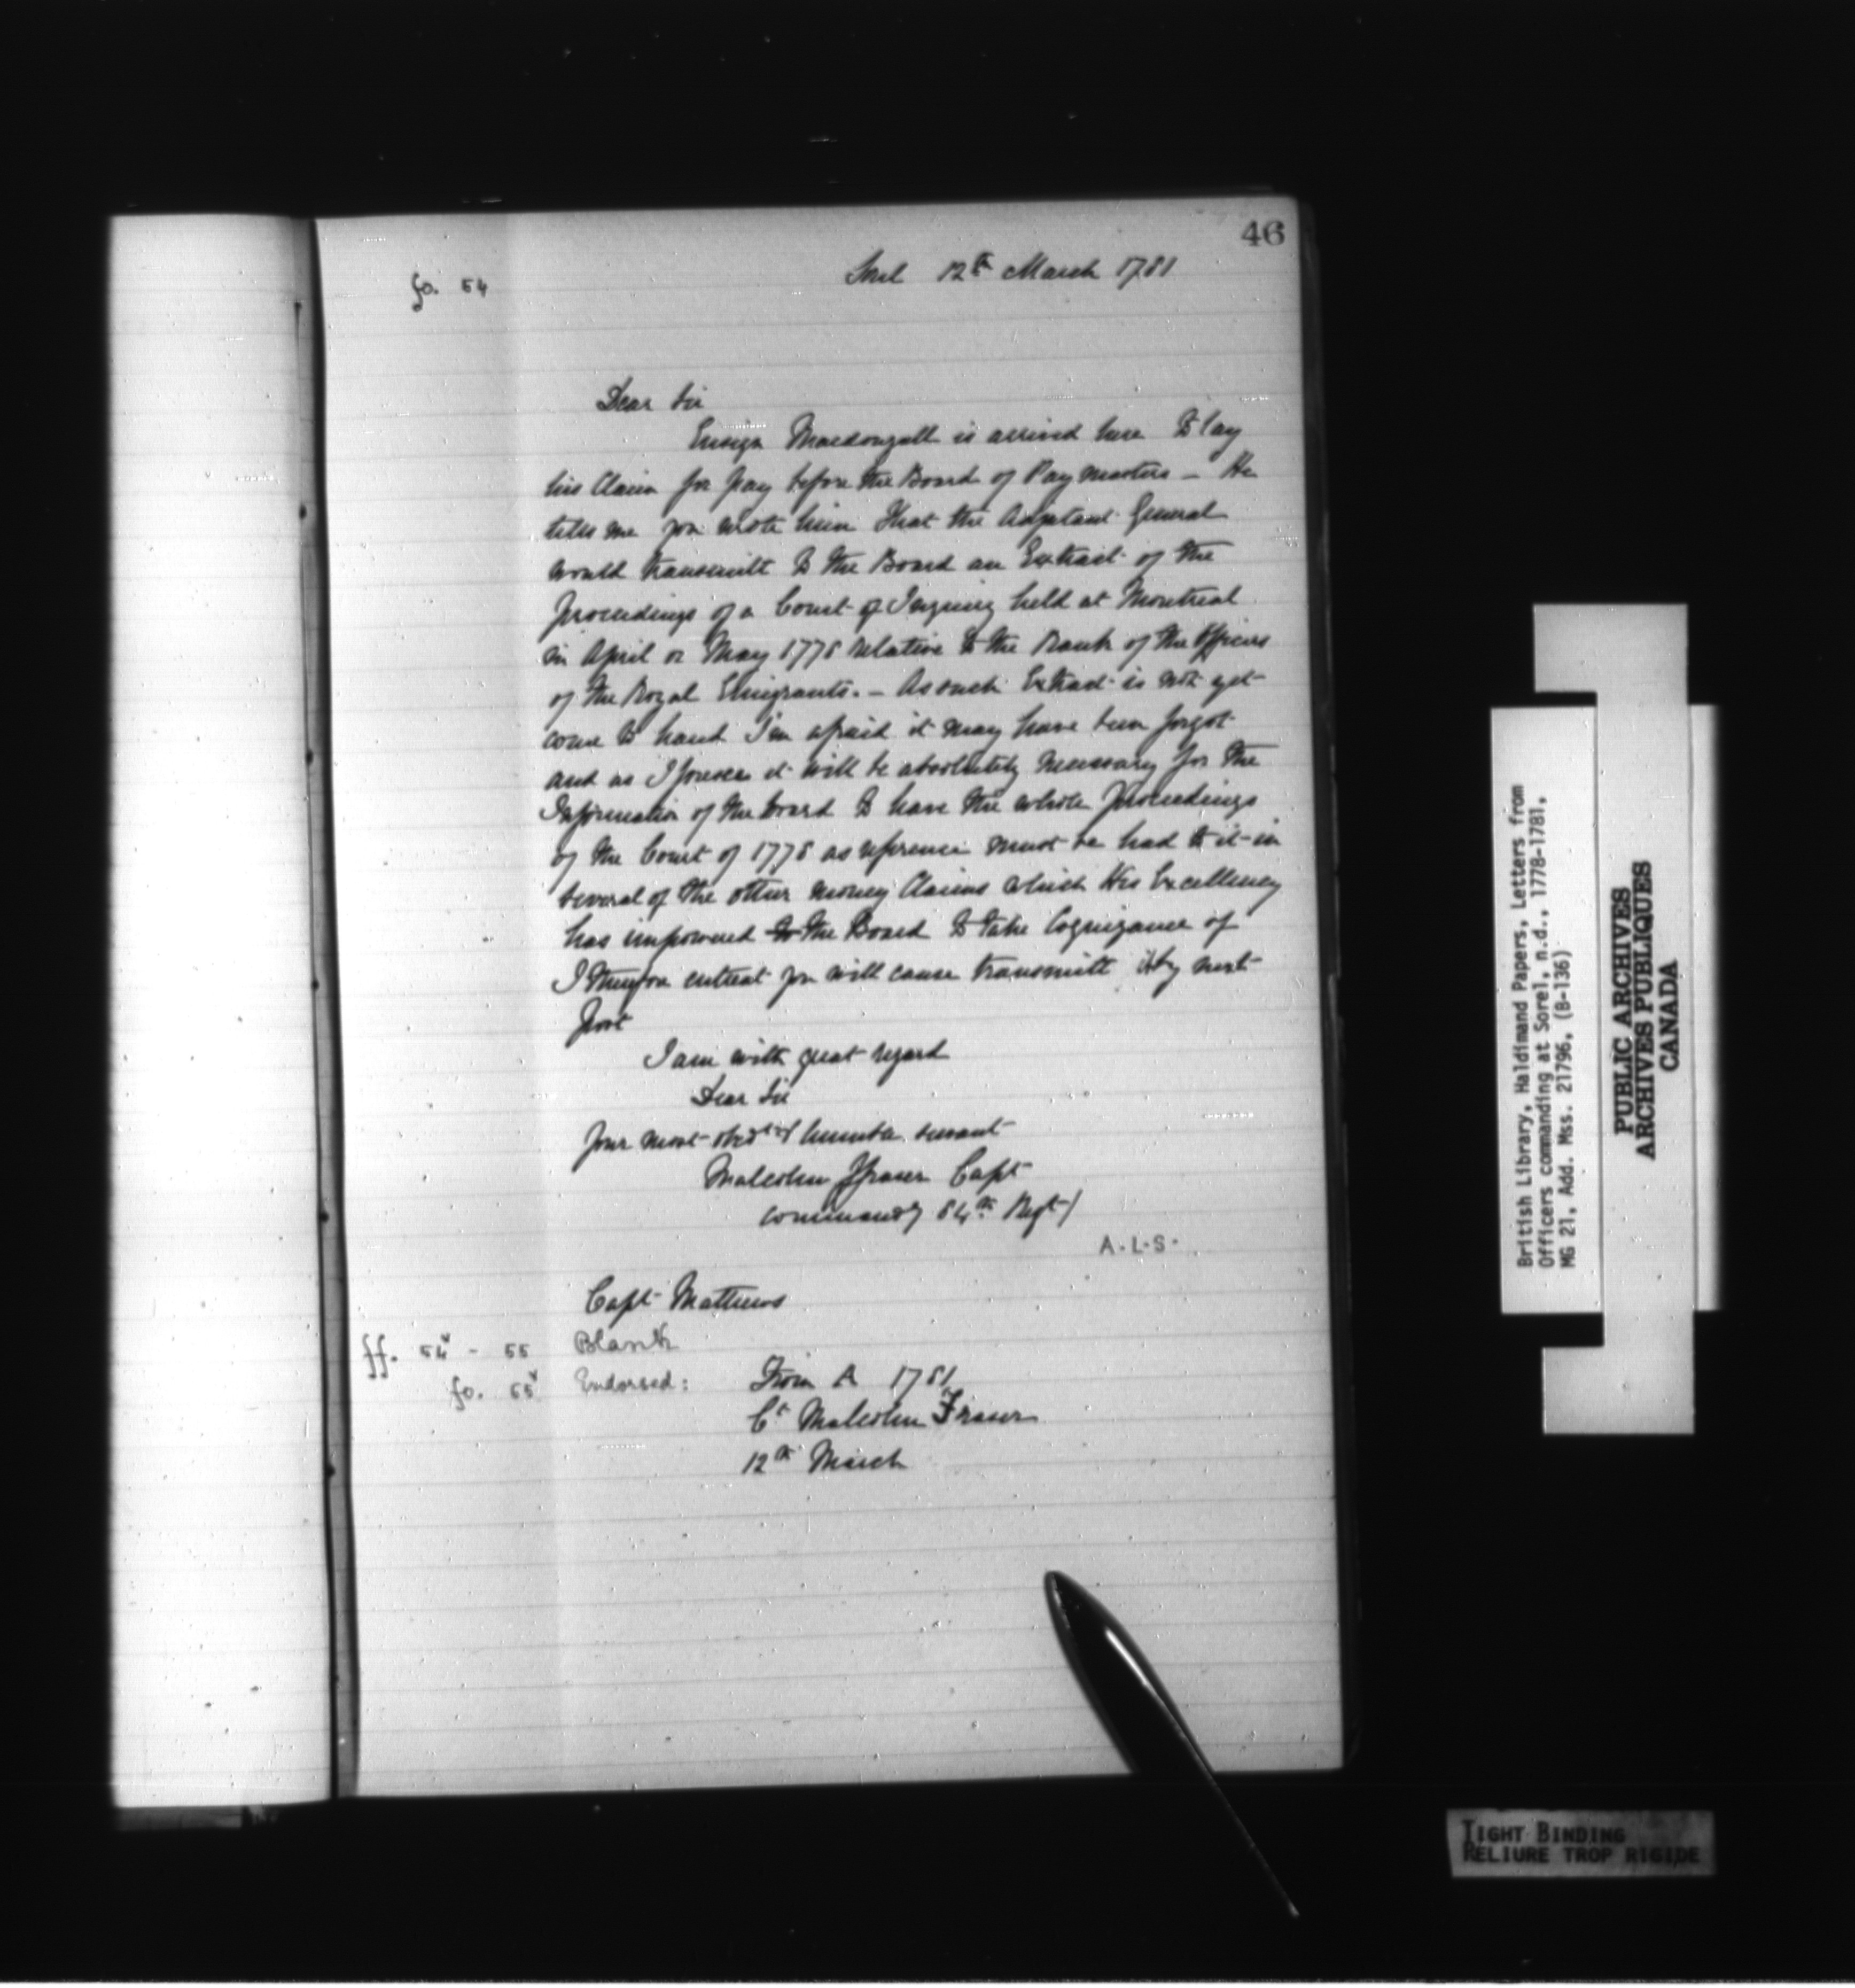 46
fo. 54
Sorel 12th March 1781
Dear Sir
Ensign Macdougall is arrived here to lay
his Claim for pay before the Board of Paymasters - He
tells me you wrote him that the Adjutant General
would transmitt to the Board an Extract of the
proceedings of a Court of Inquiry held at Montreal
in April or May 1778 relative to the Rank of the Officers
of the Royal Emigrants. - As such Extract is not yet
come to hand I'm afraid it may have been forgot
and as I foresee it will be absolutely necessary for the
Information of the board to have the whole proceedings
of the Court of 1778 as reference must be had to it in
several of the other money Claims which His Excellency
has impowered to the Board to take Cognizance of
I therefore entreat you will cause transmitt it by next
post
I am with great regard
Dear Sir
Your most obedt & humble servant
Malcolm Fraser Capt
commandg 84th Regt)
A.L.S.
Capt Mathews
ff. 54v - 55 Blank
fo. 55v Endorsed: From A 1781
Ct Malcolm Fraser
12th March
British Library, Haldimand Papers, Letters from
Officers commanding at Sorel, n.d., 1778-1781,
MG 21, Add. Mss. 21796, (B-136)
PUBLIC ARCHIVES
ARCHIVES PUBLIQUES
CANADA
TIGHT BINDING
RELIURE TROP RIGIDE